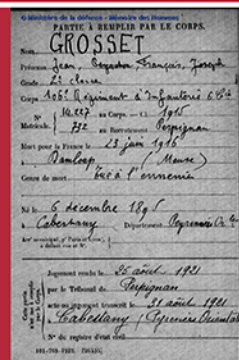 © Ministère de la défense - Mémoire des Hommes
PARTIE À REMPLIR PAR LE CORPS.
Nom GROSSET
Prénoms Jean, François, Joseph
Grade 2e classe
Corps 106e Régiment d'Infanterie
N° Matricule. 14.227 au Corps. — Cl. 1915
732 au Recrutement Perpignan
Mort pour la France le 23 juin 1916
à Damloup (Meuse)
Genre de mort tué à l'ennemi
Né le 6 décembre 1895
à Cabestany Département Pyrénées Or les
Arrt municipal (pr Paris et Lyon),
à défaut rue et N°.
Cette partie n'est pas à remplir par le Corps.
Jugement rendu le 25 août 1921
par le Tribunal de Perpignan
acte ou jugement transcrit le 31 août 1921
à Cabestany (Pyrénées Orientales
N° du registre d'état civil